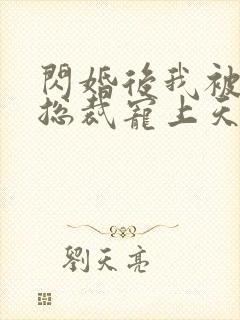 閃婚後我被
總裁寵上天
劉天亮